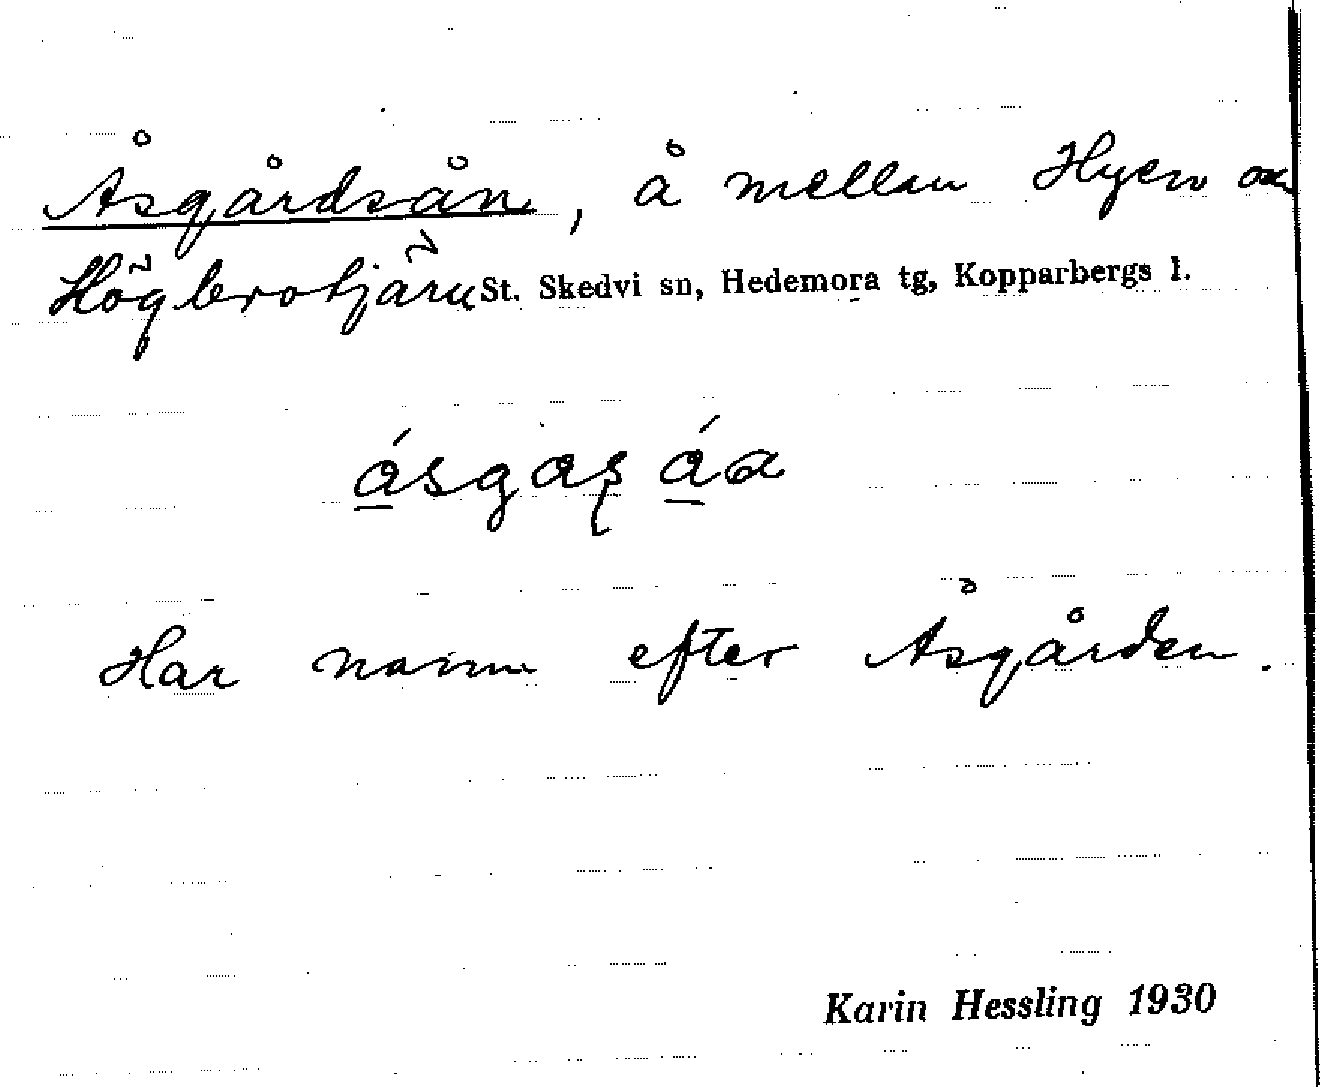 Åsgårdsån, å mellan Hyen
Högbrotjärn St. Skedvi sn, Hedemora tg, Kopparbergs l.
Har namn efter Åsgården.
Karin Hessling 1930